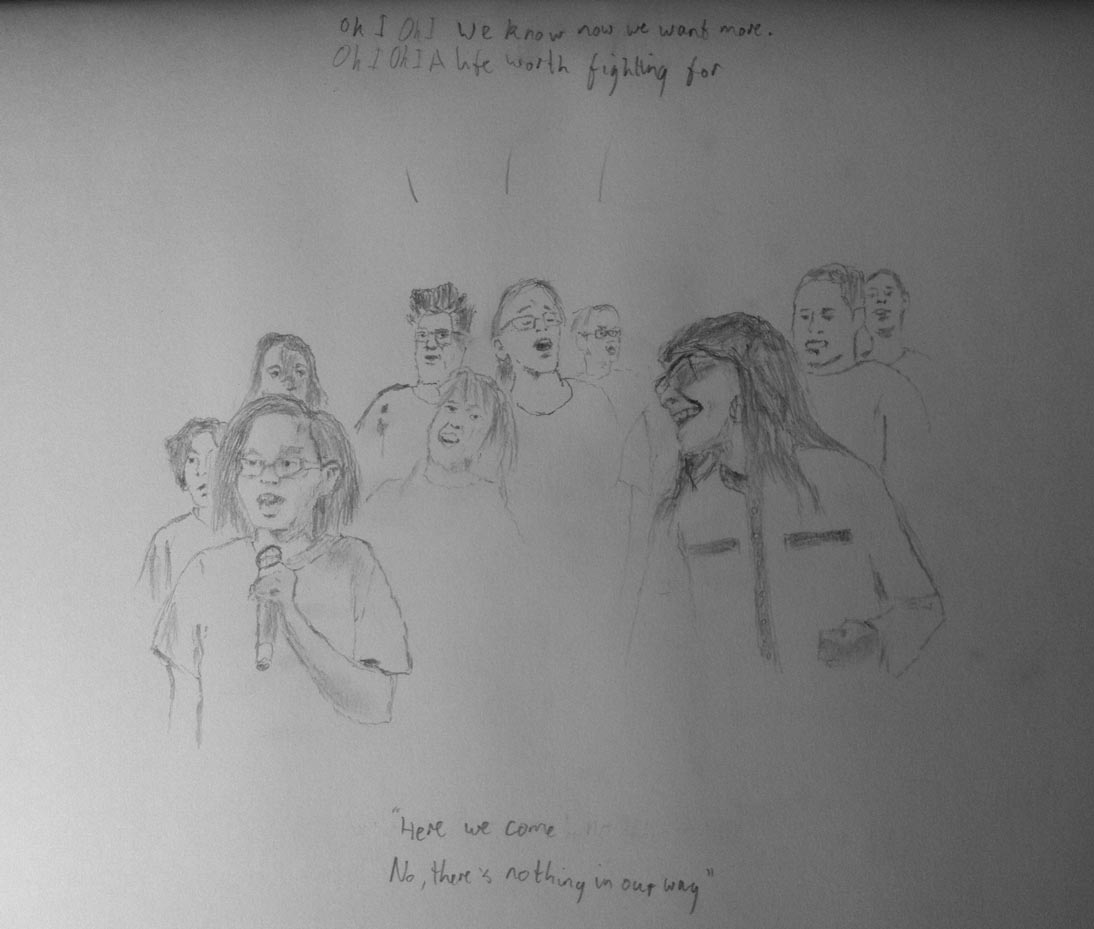 Oh I Oh I We know now we want more.
Oh I Oh I A life worth fighting for
"Here we come
No, there's nothing in our way"